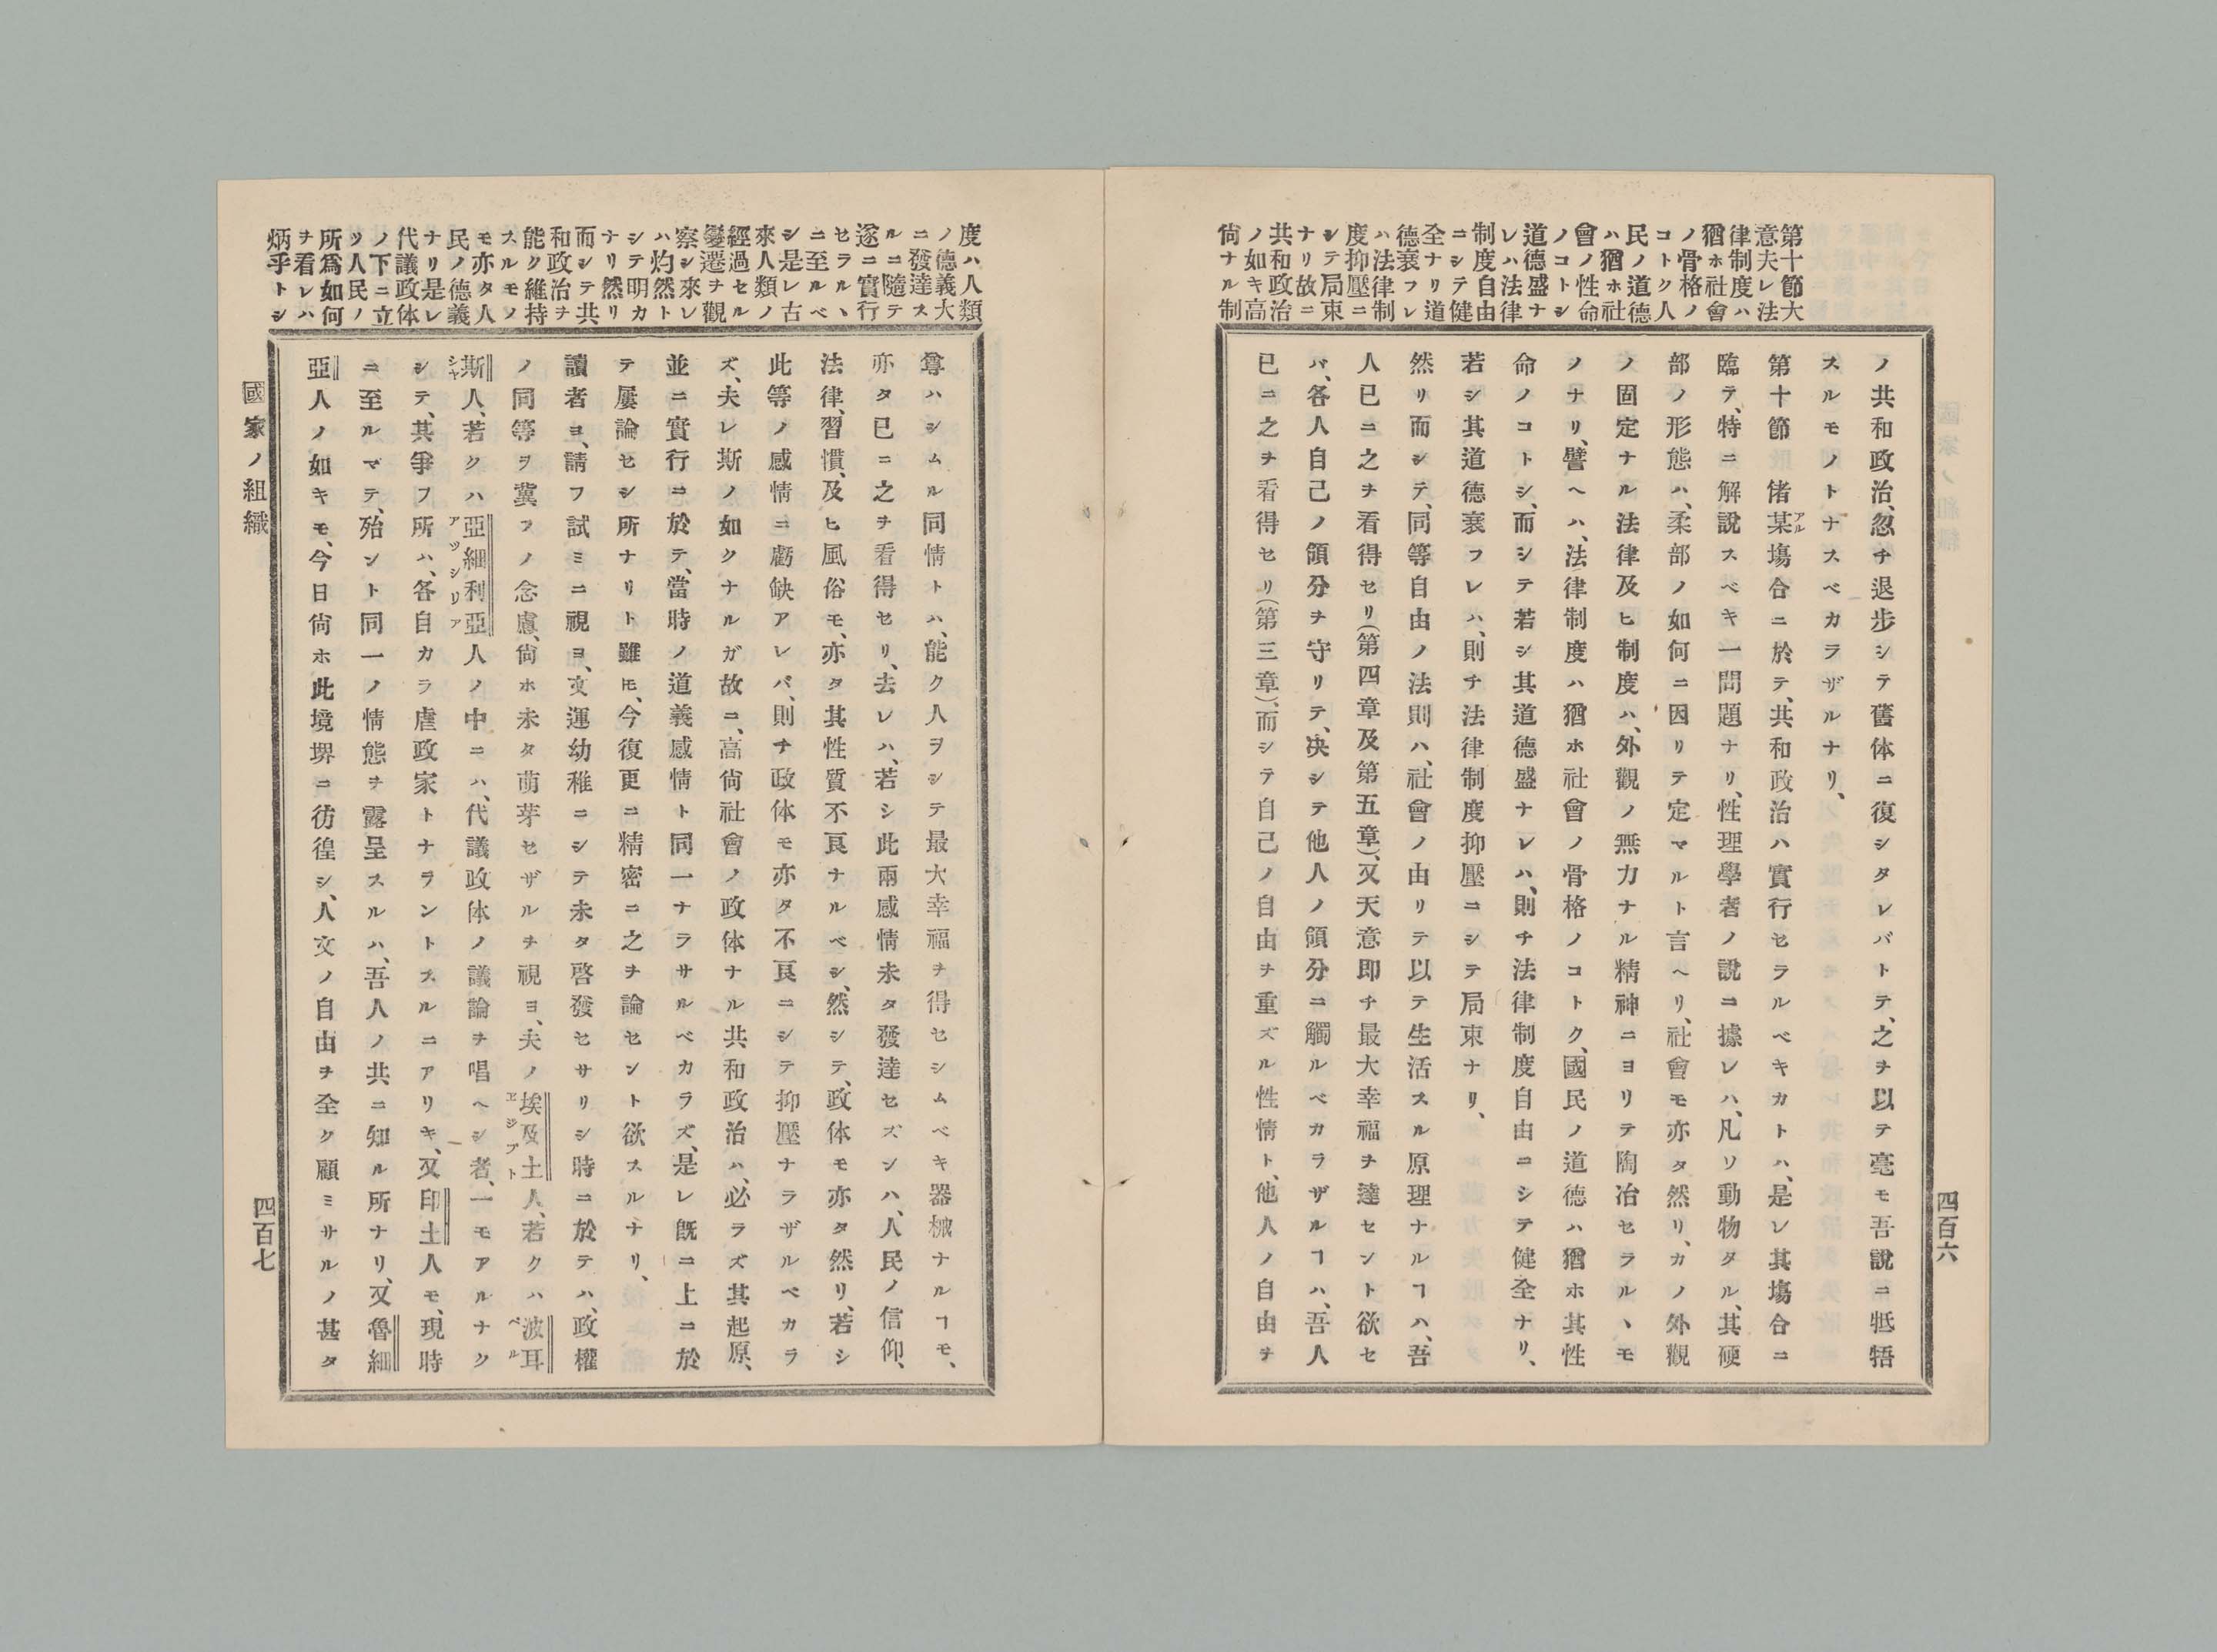 第十節大
意夫レ法
律制度ハ
猶ホ社會
ノ骨格ノ
コトク人
民ノ道德
ハ猶ホ社
會ノ性命
ノコトシ
道德盛ナ
レハ法律
制度自由
ニシテ健
全ナリ道
德衰フレ
ハ法律制
度抑壓ニ
シテ局束
ナリ故ニ
共和政治
ノ如キ高
尙ナル制
ノ共和政治、忽チ退步シテ舊体ニ復シタレバトテ、之ヲ以テ毫モ吾說ニ牴牾
スルモノトナスベカラザルナリ、
第十節 偖某塲合ニ於テ、共和政治ハ實行セラルベキカトハ、是レ其塲合ニ
アル
臨テ、特ニ解說スベキ一問題ナリ、性理學者ノ說ニ據レハ、凡ソ動物タル、其硬
部ノ形態ハ、柔部ノ如何ニ因リテ定マルト言ヘリ、社會モ亦タ然リ、カノ外觀
ノ固定ナル法律及ヒ制度ハ、外觀ノ無力ナル精神ニヨリテ陶冶セラルヽモ
ノナリ、譬ヘハ、法律制度ハ猶ホ社會ノ骨格ノコトク、國民ノ道德ハ猶ホ其性
命ノコトシ、而シテ若シ其道德盛ナレハ、則チ法律制度自由ニシテ健全ナリ、
若シ其道德衰フレハ、則チ法律制度抑壓ニシテ局束ナリ、
然リ而シテ、同等自由ノ法則ハ、社會ノ由リテ以テ生活スル原理ナルヿハ、吾
人已ニ之ヲ看得セリ(第四章及第五章)、又天意即チ最大幸福ヲ達セント欲セ
バ、各人自己ノ領分ヲ守リテ、決シテ他人ノ領分ニ觸ルベカラザルヿハ、吾人
已ニ之ヲ看得セリ(第三章)、而シテ自己ノ自由ヲ重ズル性情ト、他人ノ自由ヲ
四百六
度ハ人類
ノ德義大
ニ發達ス
ルニ隨テ
遂ニ實行
セラルヽ
ニ至ルベ
シ是レ古
來人類ノ
經過セル
變遷ヲ觀
察シ來レ
ハ灼然ト
シテ明カ
ナリ然リ
而シテ共
和政治ヲ
能ク維持
スルモノ
モ亦タ人
民ノ德義
ナリ是レ
代議政体
ノ下ニ立
ツ人民ノ
所爲如何
ヲ看レハ
炳乎トシ
尊ハシムル同情トハ、能ク人ヲシテ最大幸福ヲ得セシムベキ器械ナルヿモ、
亦タ已ニ之ヲ看得セリ、去レハ、若シ此兩感情未タ發達セズンハ、人民ノ信仰、
法律、習慣、及ヒ風俗モ、亦タ其性質不良ナルベシ、然シテ、政体モ亦タ然リ、若シ
此等ノ感情ニ虧缺アレバ、則チ政体モ亦タ不良ニシテ抑壓ナラザルベカラ
ズ、夫レ斯ノ如クナルガ故ニ、高尙社會ノ政体ナル共和政治ハ、必ラズ其起原、
並ニ實行ニ於テ、當時ノ道義感情ト同一ナラサルベカラズ、是レ旣ニ上ニ於
テ屢論セシ所ナリト雖𪜈、今復更ニ精密ニ之ヲ論セント欲スルナリ、
讀者ヨ、請フ試ミニ視ヨ、文運幼稚ニシテ未タ啓發セサリシ時ニ於テハ、政權
ノ同等ヲ冀フノ念慮、尙ホ未タ萌芽セザルヲ視ヨ、夫ノ埃及土人、若クハ波耳
エジプト
ペル
斯人、若クハ亞細利亞人ノ中ニハ、代議政体ノ議論ヲ唱ヘシ者、一モアルナク
シヤ
アツシリア
シテ、其爭フ所ハ、各自カラ虐政家トナラントスルニアリキ、又印土人モ、現時
ニ至ルマテ、殆ント同一ノ情態ヲ露呈スルハ、吾人ノ共ニ知ル所ナリ、又魯細
亞人ノ如キモ、今日尙ホ此境堺ニ彷徨シ、人文ノ自由ヲ全ク顧ミサルノ甚タ
國家ノ組織
四百七